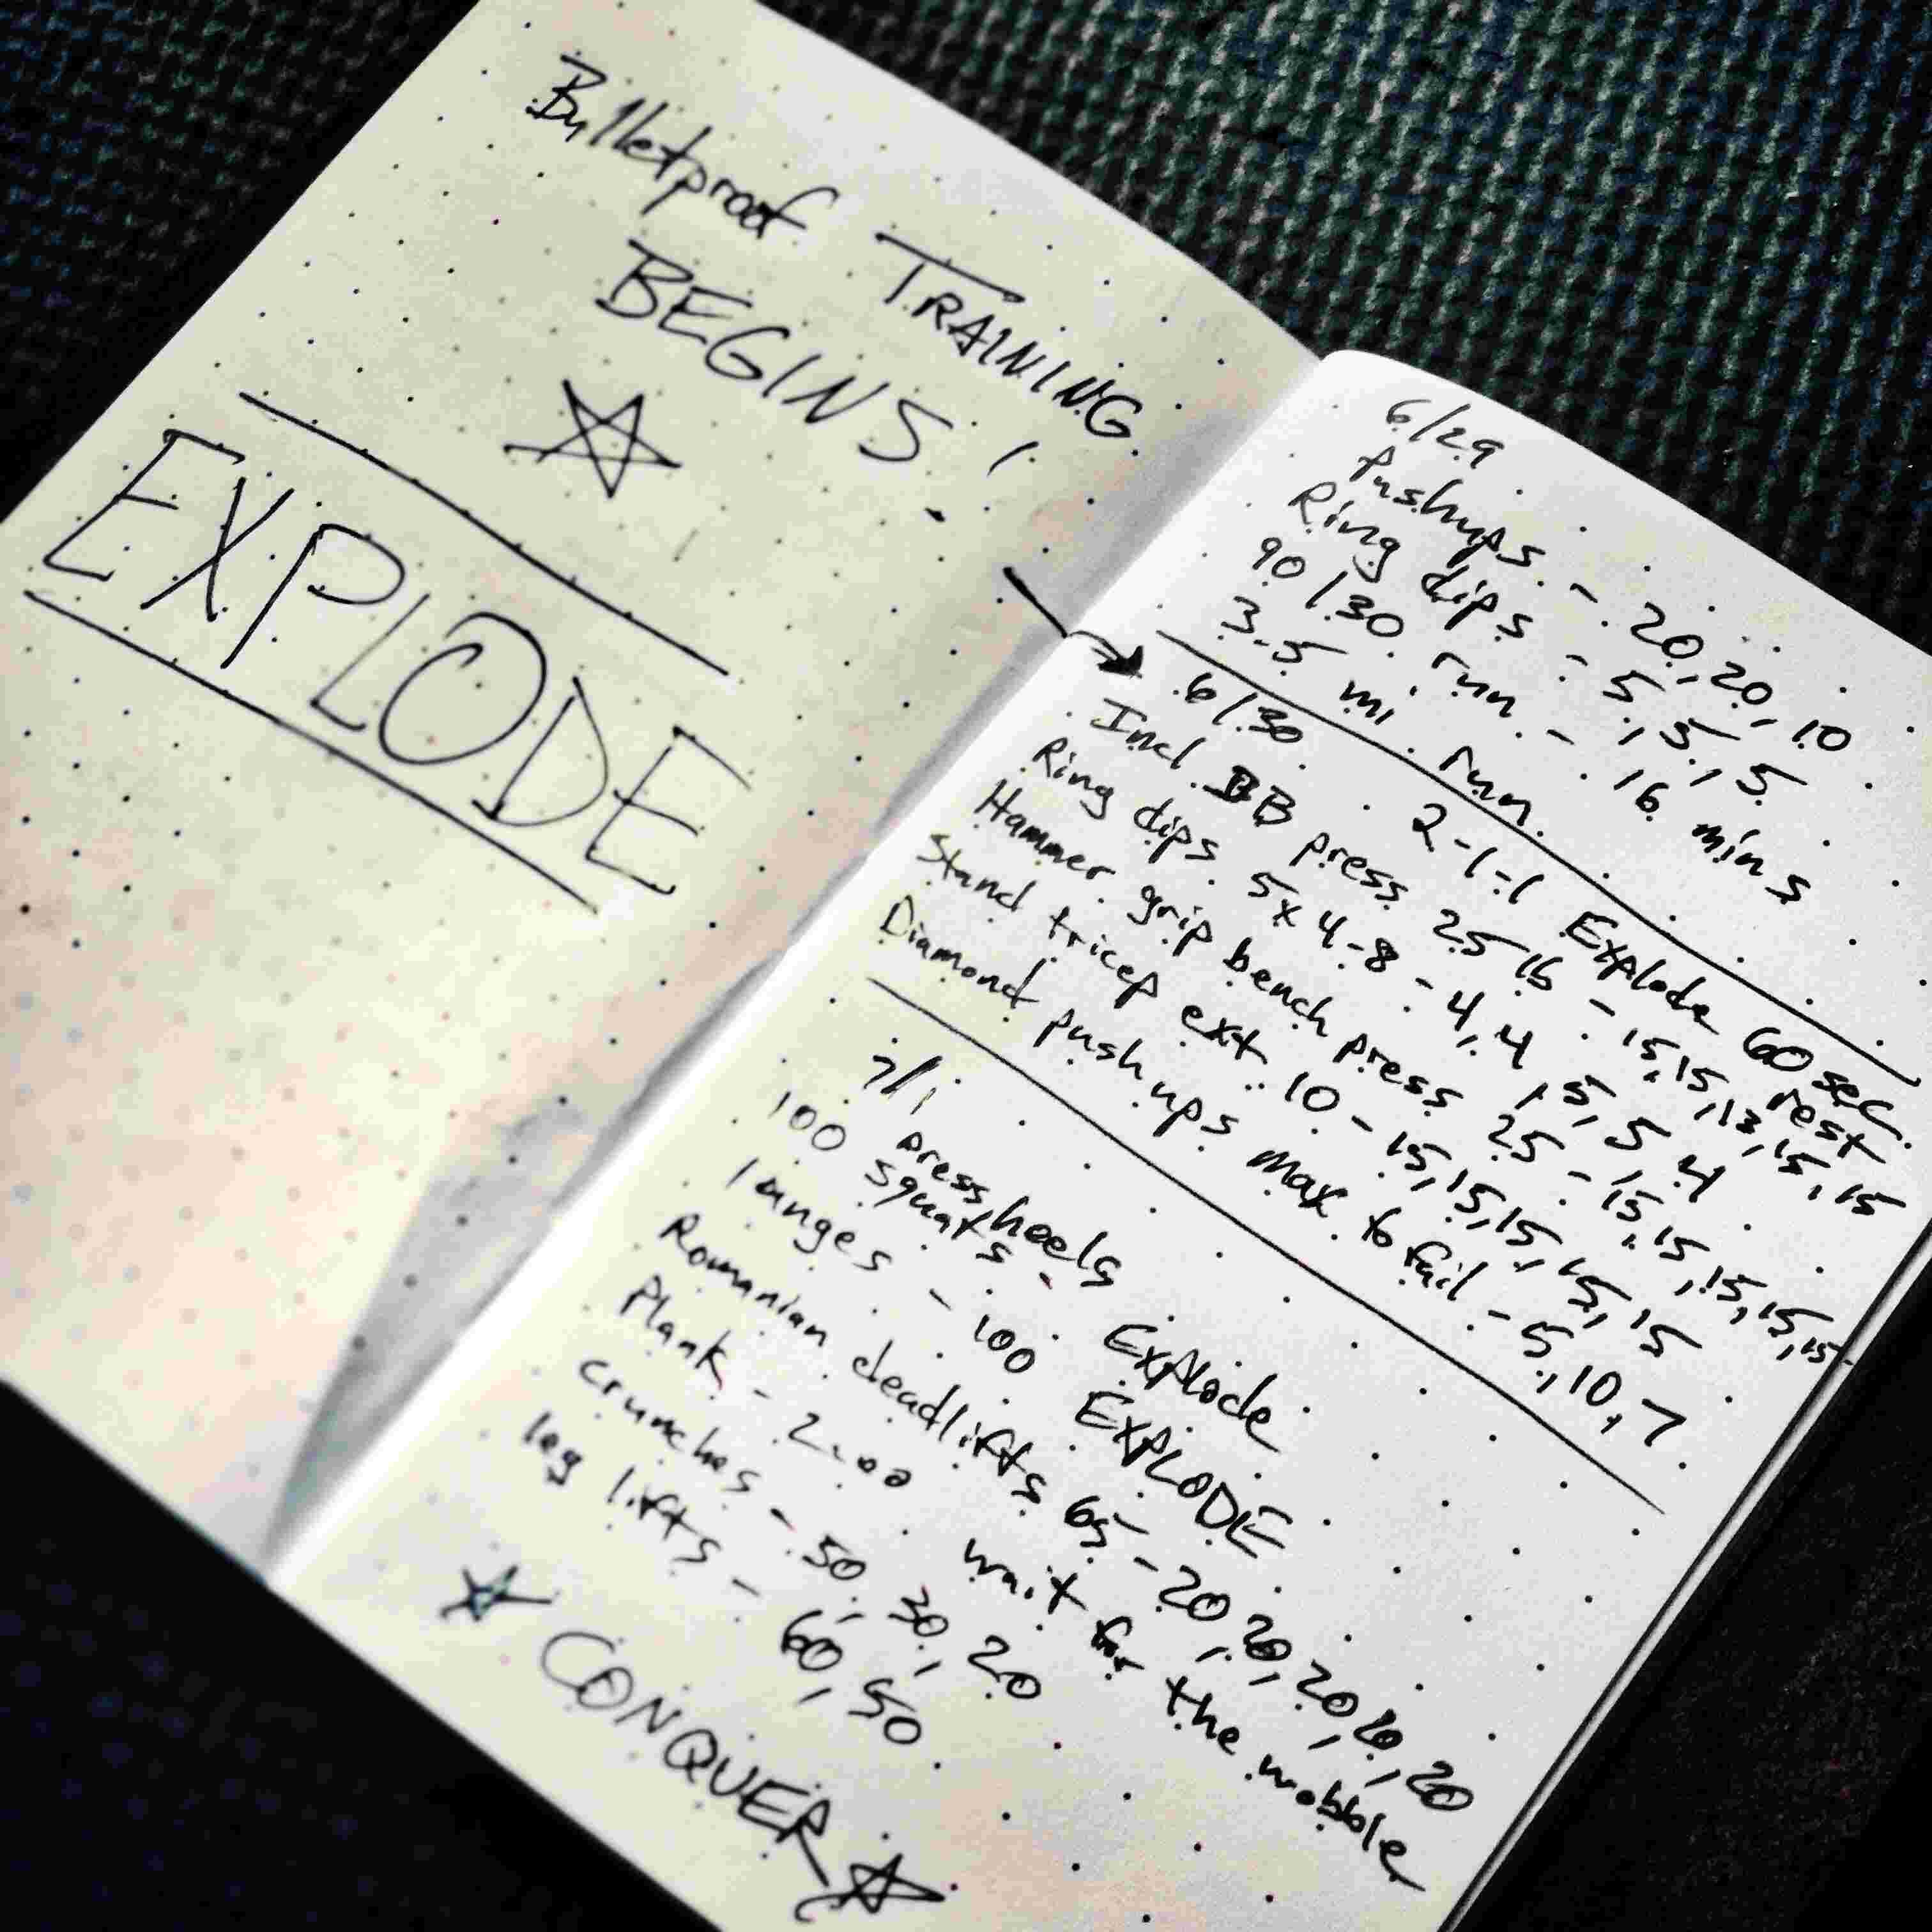 Bulletproof TRAINING
BEGINS!
EXPLODE
6/29
Pushups - 20, 20, 10
Ring dips - 5, 5, 5
90/30 run - 16 mins
3.5 mi run
6/30 2-1-1 Explode 60 sec. rest
Incl. BB press 25 lb - 15, 15, 13, 15, 15
Ring dips 5x4-8 - 4, 4, 5, 5, 4
Hammer grip bench press 25 - 15, 15, 15, 15, 15
Stand tricep ext. 10 - 15, 15, 15, 15, 15
Diamond pushups max to fail - 5, 10, 7
7/1 press heels
100 squats - Explode
lunges - 100 EXPLODE
Romanian deadlifts 65 - 20, 20, 20, 20, 20
Plank - 2:00 wait for the wobble
crunches - 50, 30, 20
leg lifts - 60, 50
CONQUER